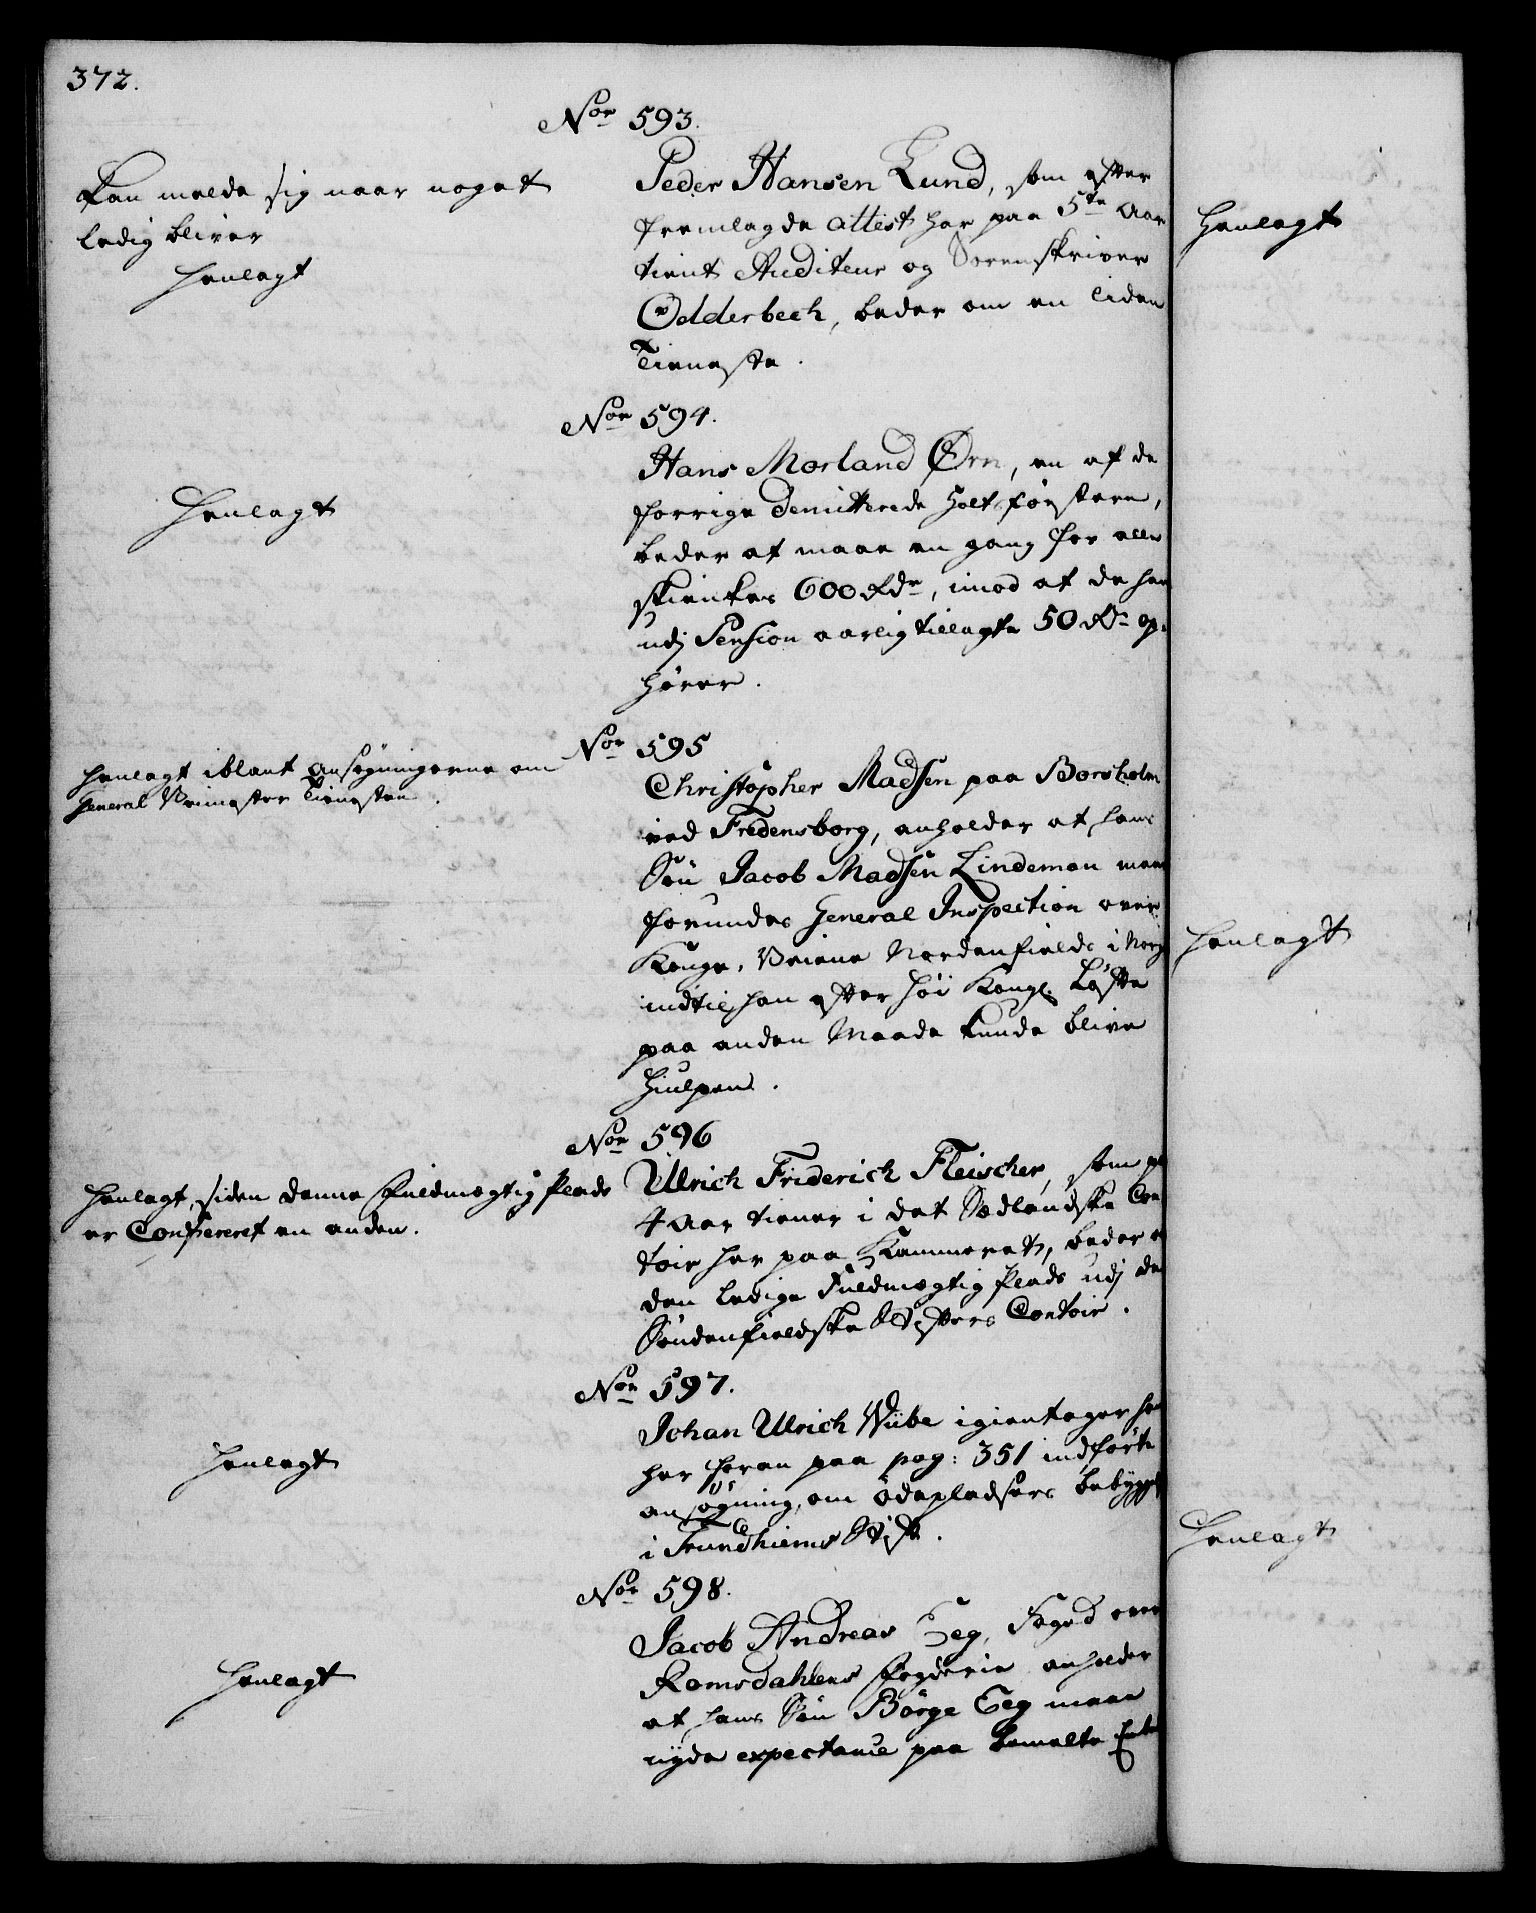 372.
Nor 593.
Kan melde sig naar noget
ledig bliver
Henlagt
Peder Hansen Lund, som efter
fremlagde attest har paa 5te Aar
tient Auditeur og Sorenskriver
Odderbech, beder om en liden
Tieneste.
Nor 594.
Henlagt
Hans Morland Ørn, en af de
forrige demitterede Holtförstere,
beder at maae en gang for alle
skienkes 600 Rdr, imod at de ham
udj Pension aarlig tillagte 50 Rdr op-
hører.
Nor 595
Henlagt iblant Ansøgningerne om
General Veimester Tienesten.
Christopher Madsen paa
ved Fredensborg, anholder at hans
Søn Jacob Madsen Lindeman maae
forundes General Inspection over
Konge-Veiene Nordenfields i Norge
indtil han efter høi Kongl. Løfte
paa anden Maade kunde blive
hiulpen.
Nor 596
Henlagt, siden denne Fuldmægtig Plads
er Confereret en anden.
Ulrich Friderich Fleischer, som paa
4 Aar tiener i det Contoir
her paa Kammeret, beder om
den ledige Fuldmægtig Plads udj det
Søndenfieldske Stifters Contoir.
Nor 597.
Henlagt
Johan Ulrich Wiibe igientager
her foran paa pag: 351 indførte
ansøgning, om ödepladsers
i Trundhiems Stift.
Nor 598.
Henlagt
Jacob Andreas Eeg, Foged over
Romsdahlens Fogderie anholder
at hans Søn Børge Eeg maae
nyde expectance paa bemelte
Henlagt
Henlagt
Henlagt